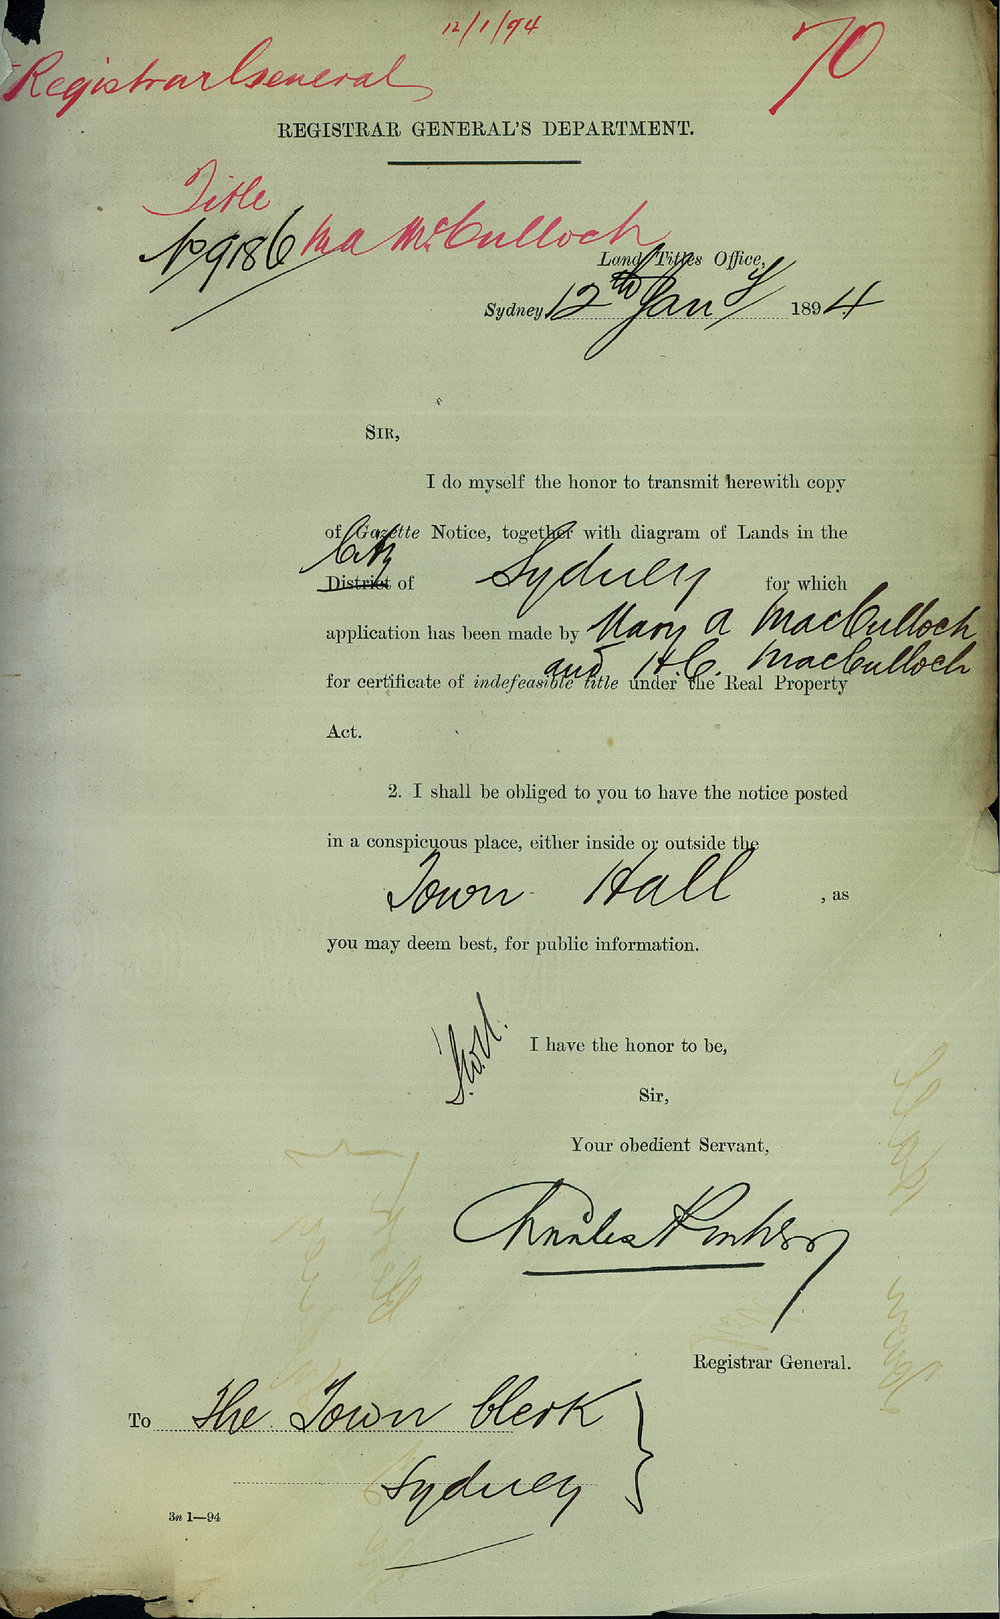 12/1/94
70
Registrar General
REGISTRAR GENERAL'S DEPARTMENT.
Title
No 9186 M A McCulloch
Land Titles Office,
Sydney 12th Jany 1894
SIR,
I do myself the honor to transmit herewith copy
of Gazette Notice, together with diagram of Lands in the
City
District of Sydney for which
application has been made by Mary A MacCulloch
and H.C. MacCulloch
for certificate of indefeasible title under the Real Property
Act.
2. I shall be obliged to you to have the notice posted
in a conspicuous place, either inside or outside the
Town Hall , as
you may deem best, for public information.
I have the honor to be,
Sir,
Your obedient Servant,
Charles
Registrar General.
To The Town Clerk
Sydney
3n 1—94